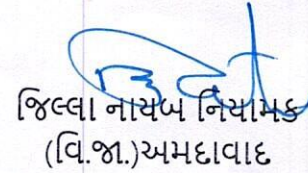 જિલ્લા નાયબ નિયામક
(વિ.જા.)અમદાવાદ